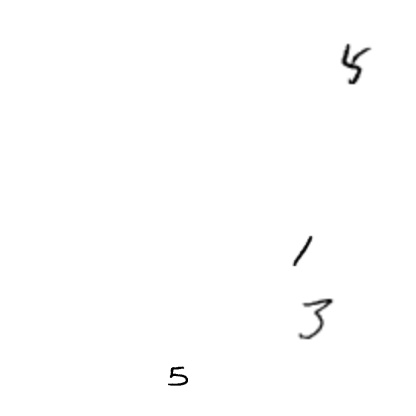 5
1
3
5